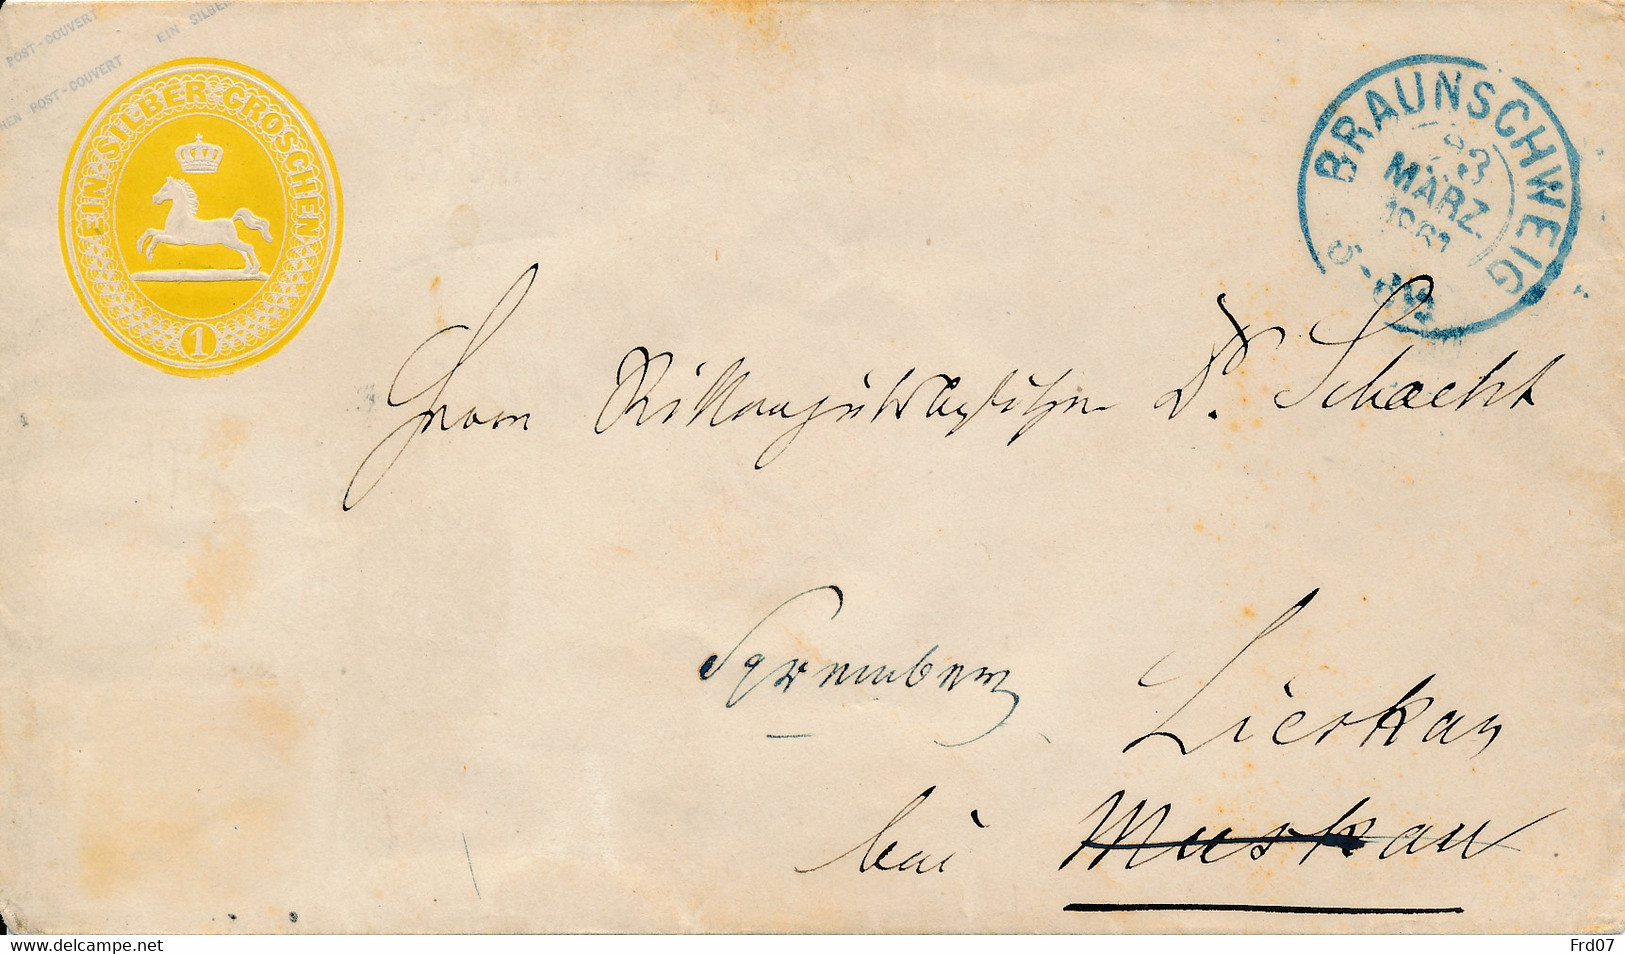 POST-COUVERT EIN SILBER
HEN POST-COUVERT
EIN SILBER GROSCHEN
1
BRAUNSCHWEIG
23
MÄRZ.
Herrn Rittergutsbesitzer Dr. Schacht
Spremberg
Lieskau
bei Muskau
www.delcampe.net
Frd07